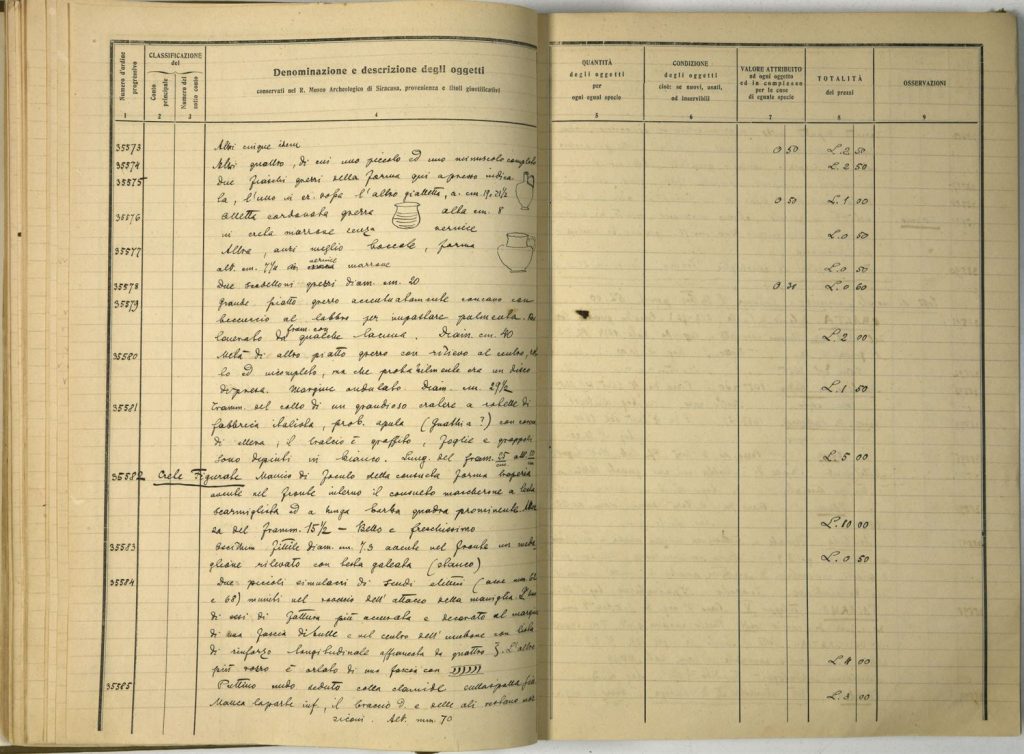 Numero d'ordine progressivo
CLASSIFICAZIONE del
Conto principale
Numero del sotto conto
Denominazione e descrizione degli oggetti
conservati nel R. Museo Archeologico di Siracusa, provenienza e titoli giustificativi
QUANTITÀ degli oggetti per ogni egual specie
CONDIZIONE degli oggetti cioè: se nuovi, usati, od inservibili
VALORE ATTRIBUITO ad ogni oggetto ed in complesso per le cose di eguale specie
TOTALITÀ dei prezzi
OSSERVAZIONI
1 2 3 4 5 6 7 8 9
35573 Altri cinque idem 0 50 L. 2 50
35574 Altri quattro, di cui uno piccolo ed uno minuscolo L. 2 50
35575 due fiaschi grezzi della forma qui appresso indica
ta, l'uno a. cm. 19 e 21 1/2 0 50 L. 1 00
35576 Olletta cordonata grezza alta cm. 8
in creta marrone senza vernice L. 0 50
35577 Altra, forma
alt. cm. 7 1/2 vernice marrone L. 0 50
35578 due scodelloni grezzi diam. cm. 20 0 30 L. 0 60
35579 Grande piatto grezzo accentuatamente concavo con
beccuccio al labbro per impastare
da fram. con qualche lacuna. Diam. cm. 40 L. 2 00
35580 Metà di altro piatto grezzo con rilievo al centro,
lo ed incompleto, ma che probabilmente era un disco
di presa. Margine ondulato Diam. cm. 29 1/2 L. 1 50
35581 Framm. del collo di un grandioso cratere a rotelle di
fabbrica italiota, prob. apula (Gnathia?) con corona
di edera; il tralcio è graffito, foglie e grappoli
sono dipinti in bianco. Lung. del fram. L. 5 00
35582 Crete Figurate Manico di focolo della consueta forma
avente nel fronte interno il consueto mascherone a testa
scarmigliata ed a lunga barba quadra prominente.
za del framm. 15 1/2 – Bello e freschissimo L. 10 00
35583 Oscillum fittile diam. cm. 7.3 avente nel fronte un meda
glione rilevato con testa galeata L. 0 50
35584 Due piccoli simulacri di scudi
e 68) muniti nel rovescio dell'attacco della maniglia
di essi di fattura più accurata e decorato al margine
di una fascia di bulle e nel centro dell'umbone con lista
di rinforzo longitudinale affiancata da quattro L'altro
più rozzo è orlato di una fascia con )))))) L. 4 00
35585 Puttino nudo seduto colla clamide sulla spalla
Manca la parte inf., il braccio d. e delle ali restano
Alt. mm 70 L. 3 00